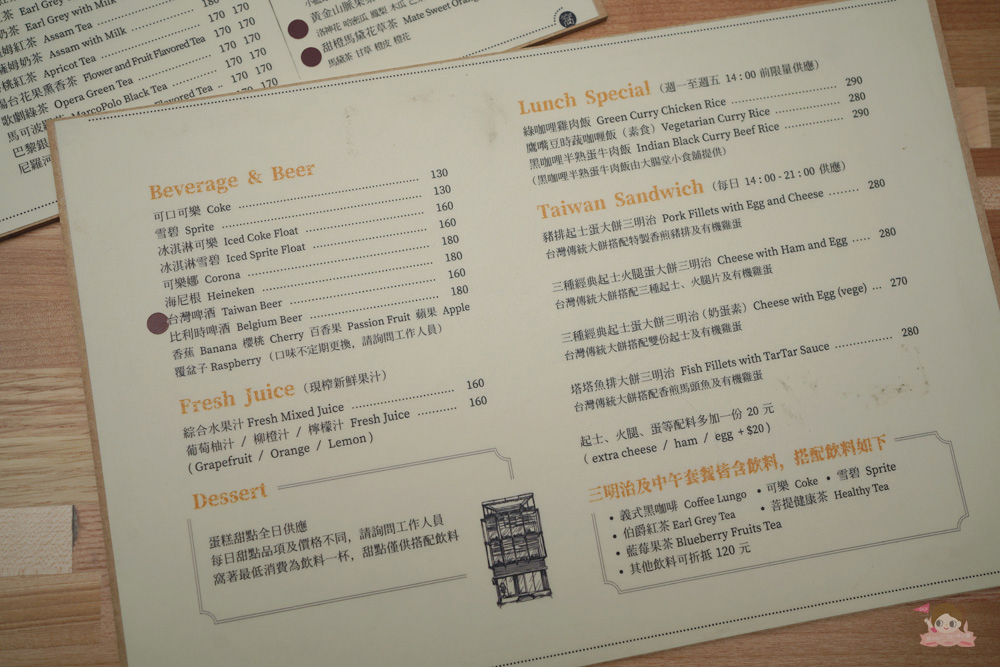 茶 Earl Grey
奶茶 Earl Grey with Milk
姆紅茶 Assam Tea 170 170
薩姆奶茶 Assam with Milk 170 170
桃紅茶 Apricot Tea 170
陽台花果薰香茶 Flower and Fruit Flavored Tea 170 170
歌劇綠茶 Opera Green Tea 170 170
馬可波羅 MarcoPolo Black Tea 170 170
巴黎銀 Flavored Tea 170 170
尼羅河
黃金山脈果茶
洛神花 哈密瓜 鳳梨 木瓜
甜橙馬黛花草茶 Mate Sweet Orange
馬黛茶 甘草 橙皮 橙花
Beverage & Beer
可口可樂 Coke 130
雪碧 Sprite 130
冰淇淋可樂 Iced Coke Float 160
冰淇淋雪碧 Iced Sprite Float 160
可樂娜 Corona 180
海尼根 Heineken 180
台灣啤酒 Taiwan Beer 160
比利時啤酒 Belgium Beer 180
香蕉 Banana 櫻桃 Cherry 百香果 Passion Fruit 蘋果 Apple
覆盆子 Raspberry（口味不定期更換，請詢問工作人員）
Fresh Juice（現榨新鮮果汁）
綜合水果汁 Fresh Mixed Juice 160
葡萄柚汁 / 柳橙汁 / 檸檬汁 Fresh Juice 160
( Grapefruit / Orange / Lemon )
Dessert
蛋糕甜點全日供應
每日甜點品項及價格不同，請詢問工作人員
窩著最低消費為飲料一杯，甜點僅供搭配飲料
Lunch Special（週一至週五 14 : 00 前限量供應）
綠咖哩雞肉飯 Green Curry Chicken Rice 290
鷹嘴豆時蔬咖哩飯（素食）Vegetarian Curry Rice 280
黑咖哩半熟蛋牛肉飯 Indian Black Curry Beef Rice 290
（黑咖哩半熟蛋牛肉飯由大腸堂小食舖提供）
Taiwan Sandwich（每日 14 : 00 - 21 : 00 供應）
豬排起士蛋大餅三明治 Pork Fillets with Egg and Cheese 280
台灣傳統大餅搭配特製香煎豬排及有機雞蛋
三種經典起士火腿蛋大餅三明治 Cheese with Ham and Egg 280
台灣傳統大餅搭配三種起士、火腿片及有機雞蛋
三種經典起士蛋大餅三明治 (奶蛋素) Cheese with Egg (vege) 270
台灣傳統大餅搭配雙份起士及有機雞蛋
塔塔魚排大餅三明治 Fish Fillets with TarTar Sauce 280
台灣傳統大餅搭配香煎馬頭魚及有機雞蛋
起士、火腿、蛋等配料多加一份 20 元
( extra cheese / ham / egg + $20 )
三明治及中午套餐皆含飲料，搭配飲料如下
• 義式黑咖啡 Coffee Lungo • 可樂 Coke • 雪碧 Sprite
• 伯爵紅茶 Earl Grey Tea • 菩提健康茶 Healthy Tea
• 藍莓果茶 Blueberry Fruits Tea
• 其他飲料可折抵 120 元